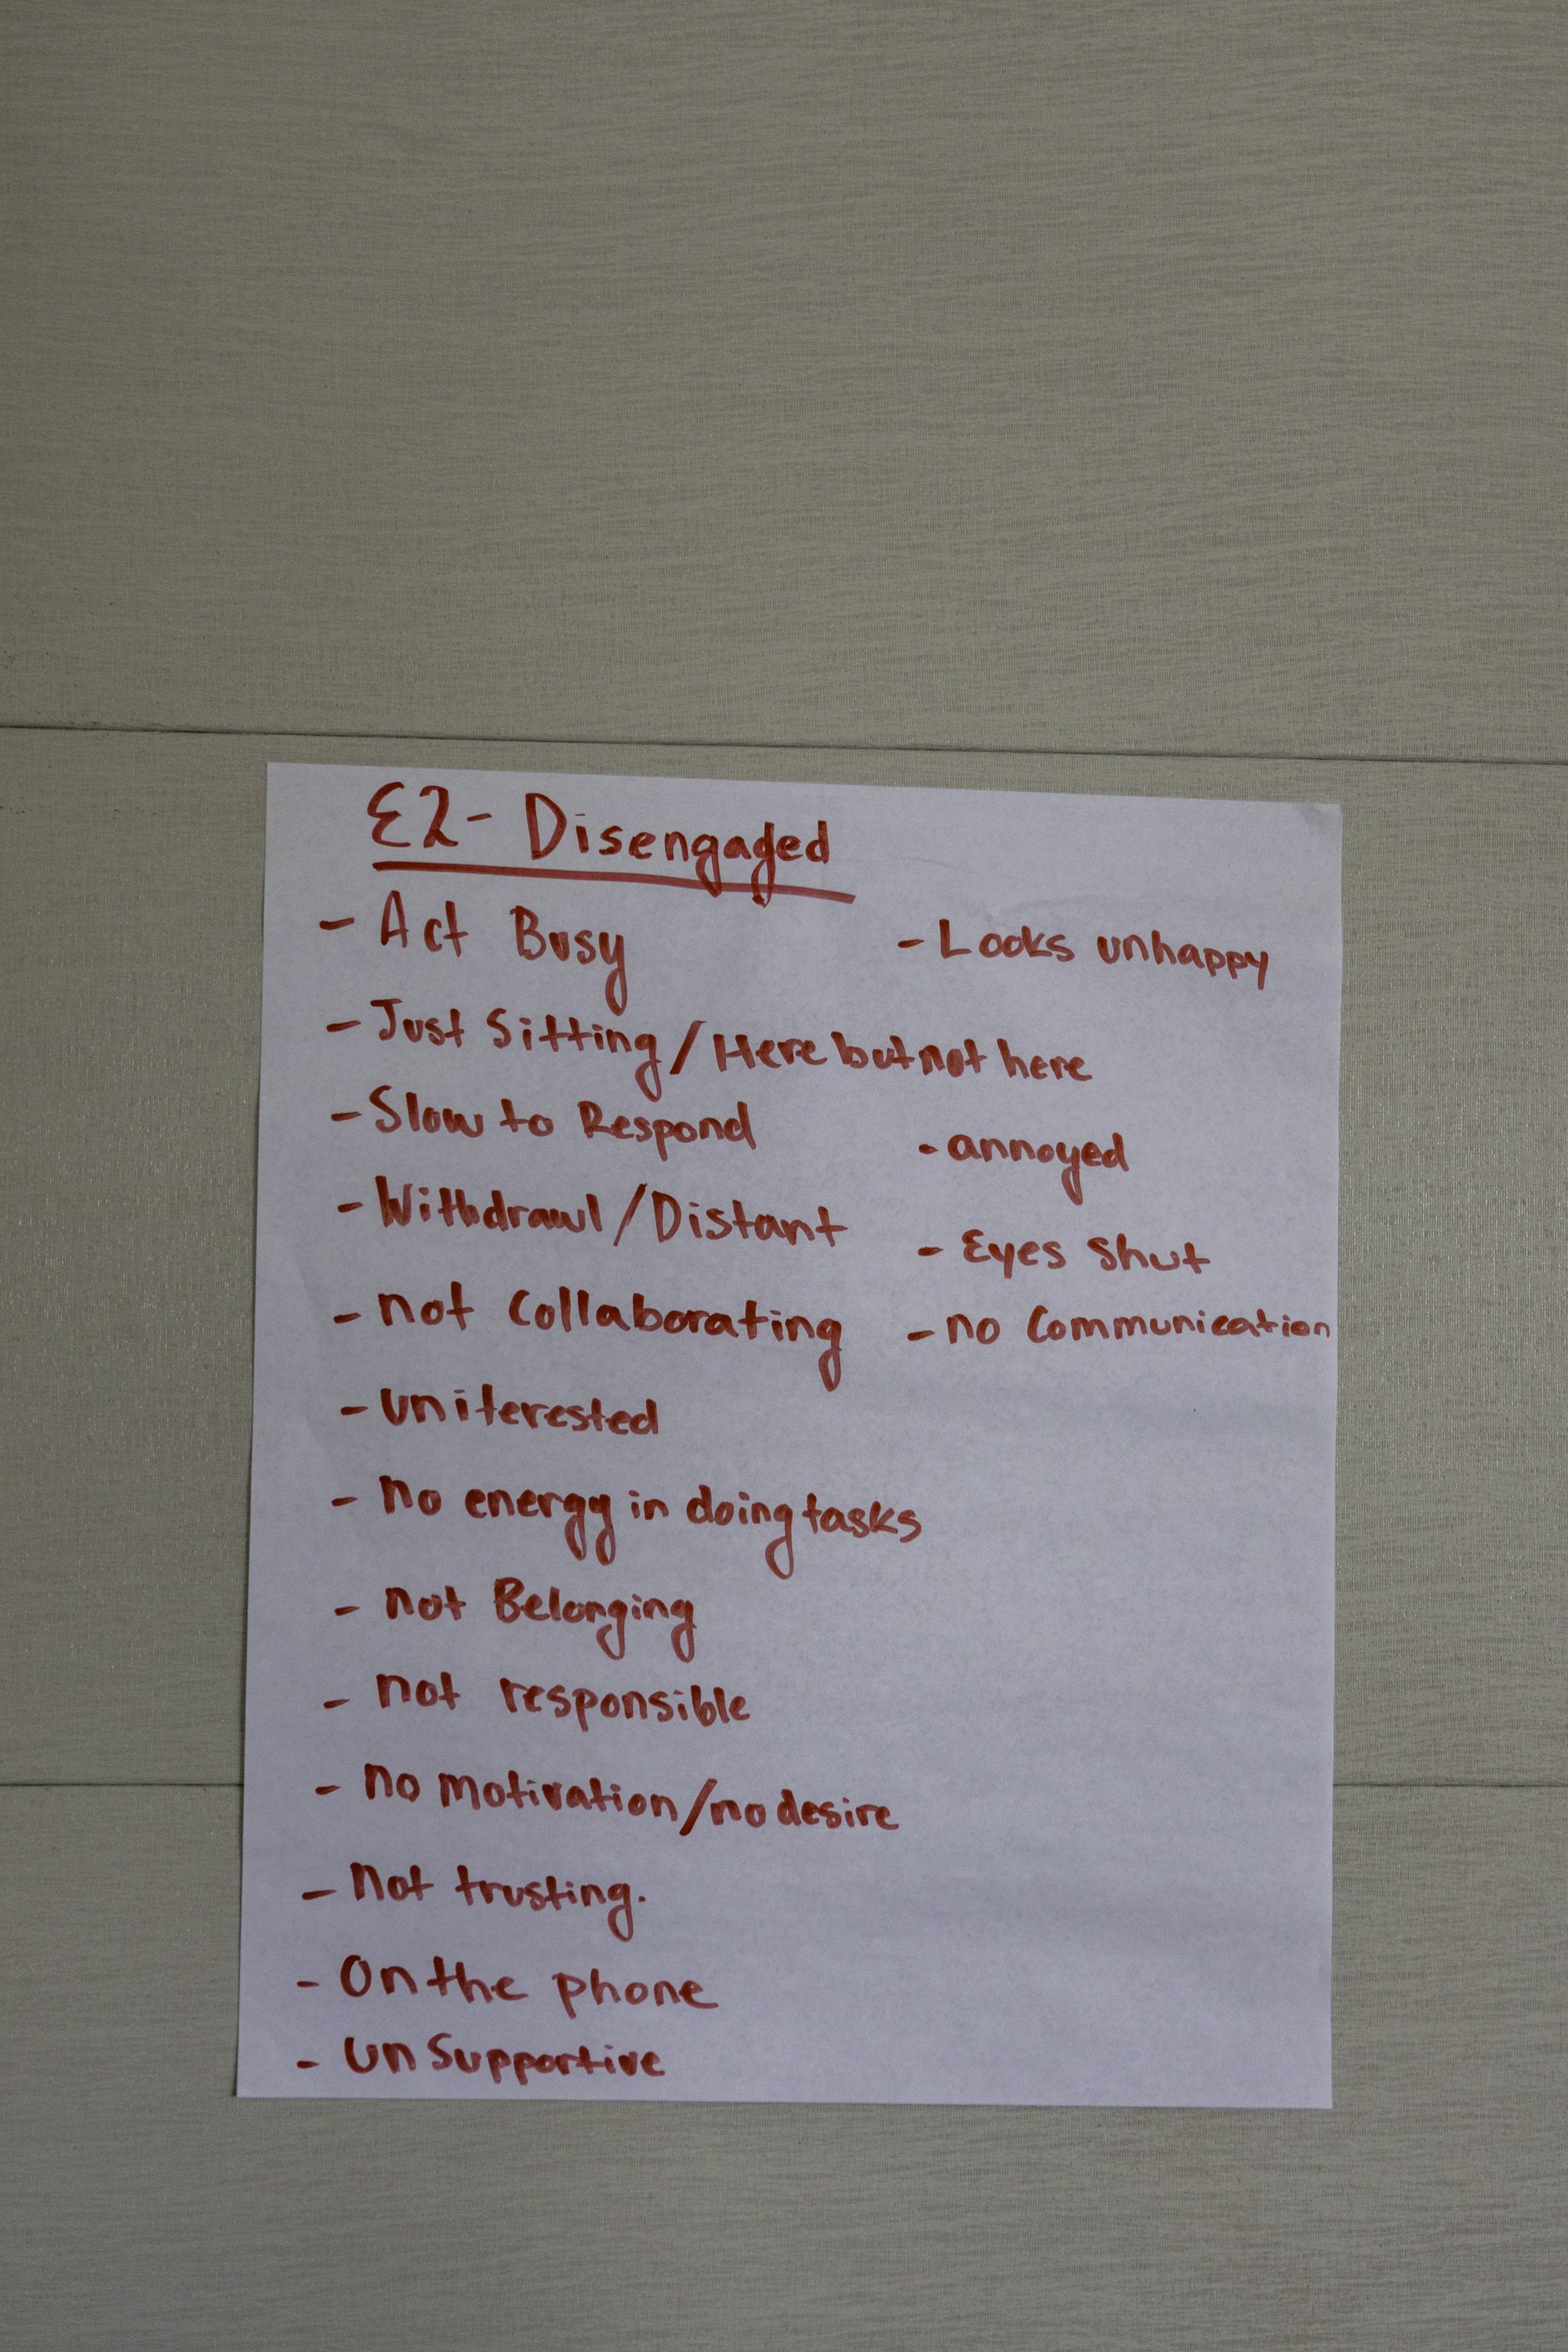 E2- Disengaged
- Act Busy
- Just Sitting/Here but not here
- Slow to Respond
- Withdrawl/Distant
- not Collaborating
- uniterested
- no energy in doing tasks
- not Belonging
- not responsible
- no motivation/no desire
- Not trusting.
- On the phone
- unSupportive
- Looks unhappy
- annoyed
- Eyes shut
- no Communication